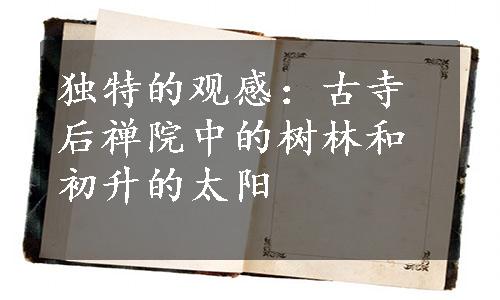 独特的观感：古寺
后禅院中的树林和
初升的太阳